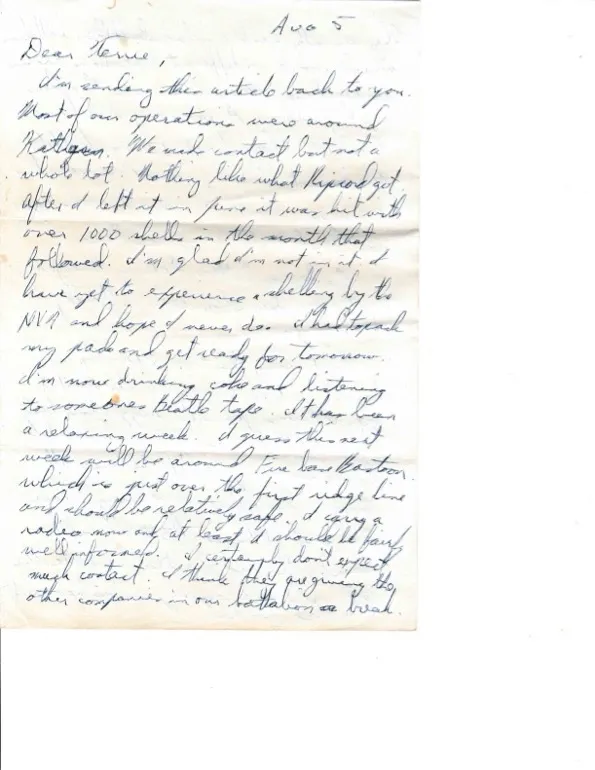 Aug 5
Dear Terrie,
I'm sending this article back to you.
Most of our operations were around
Kathryn. We made contact but not a
whole lot. Nothing like what Ripcord got.
After I left it in June it was hit with
over 1000 shells in the month that
followed. I'm glad I'm not in it. I
have yet to experience a shelling by the
NVA and hope I never do. I had to pack
my pack and get ready for tomorrow.
I'm now drinking coke and listening
to someones Beatle tape. It has been
a relaxing week. I guess this next
week will be around Fire base Bastogne
which is just over the first ridge line
and should be relatively safe. I carry a
radio now and at least I should be fairly
well informed. I certainly don't expect
much contact. I think they are giving the
other companies in our battalion a break.